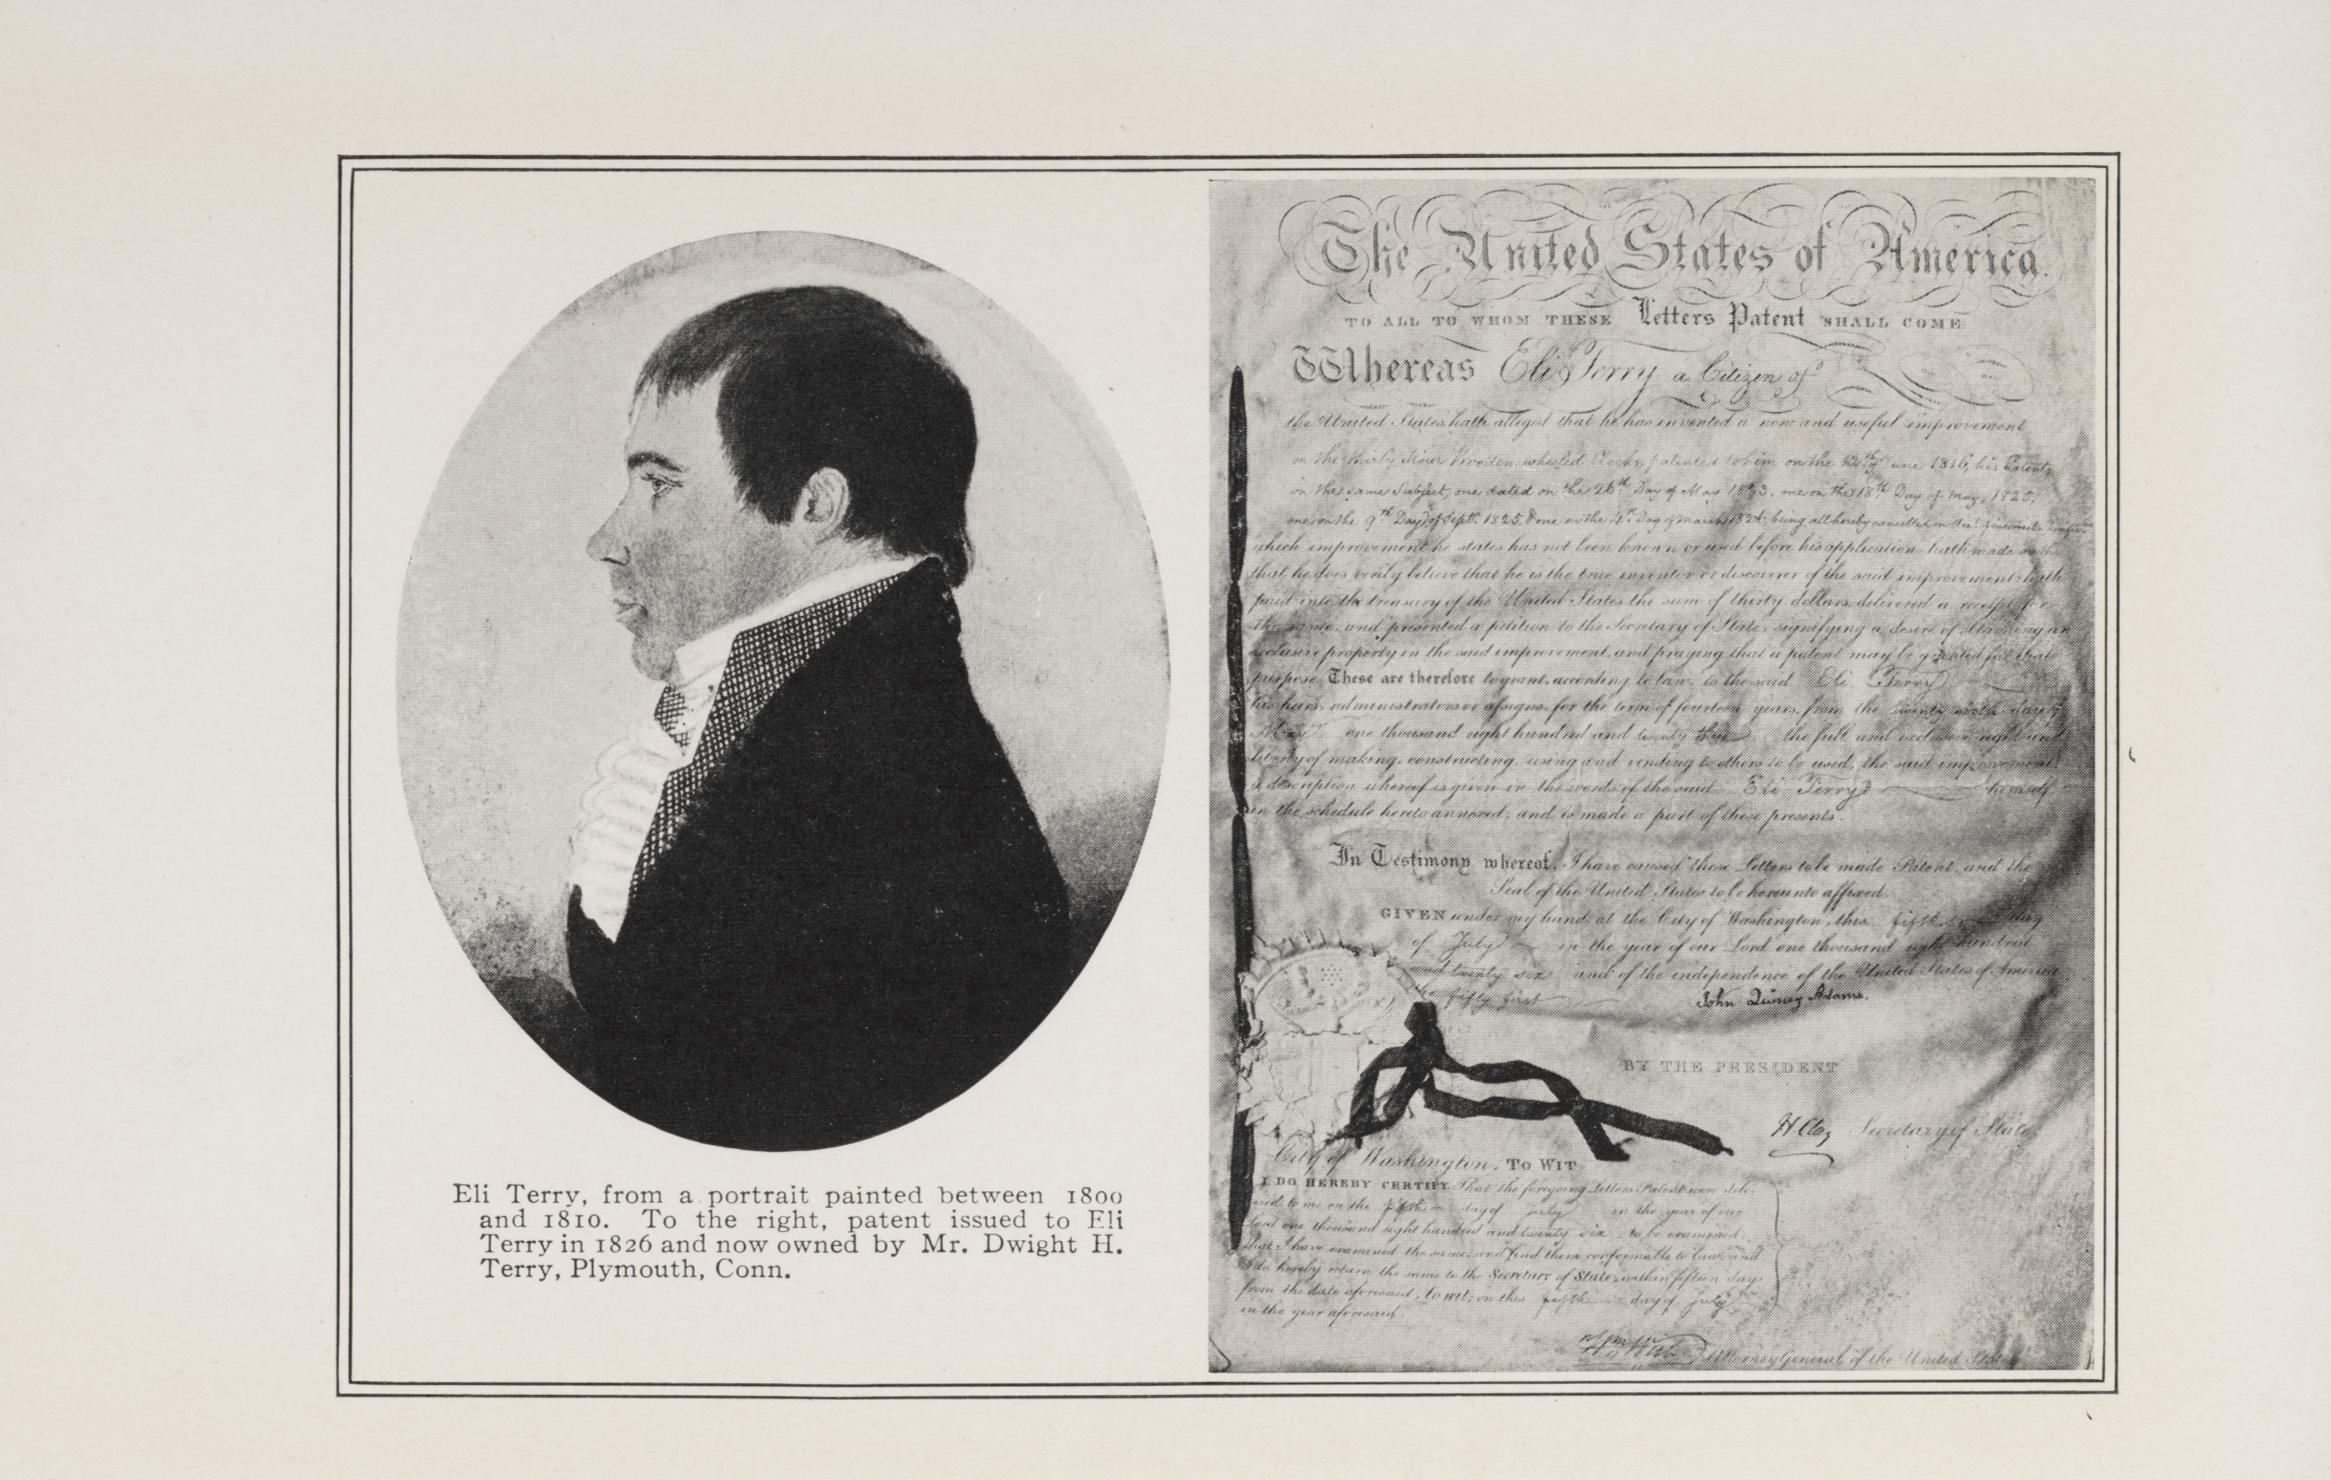 Eli Terry, from a portrait painted between 1800
and 1810. To the right, patent issued to Eli
Terry in 1826 and now owned by Mr. Dwight H.
Terry, Plymouth, Conn.
The United States of America.
TO ALL TO WHOM THESE Letters Patent SHALL COME
Whereas Eli Terry a Citizen of
the United States hath alleged that he has invented a new and useful improvement
on the thirty Hour Wooden wheeled Clocks, patented to him on the 12th June 1816, his Patents
on the same Subject, one dated on the 26th Day of May 1823, one on the 18th Day of May, 1825,
one on the 9th Day of Sept. 1825, & one on the Day of March being all hereby cancelled on
which improvement he states has not been known or used before his application hath made oath
that he does verily believe that he is the true inventor or discoverer of the said improvement hath
paid into the treasury of the United States the sum of thirty dollars, delivered a receipt for
the same, and presented a petition to the Secretary of State, signifying a desire of obtaining an
exclusive property in the said improvement, and praying that a patent may be granted for that
purpose. These are therefore to grant, according to law, to the said Eli Terry
his heirs, administrators or assigns, for the term of fourteen years, from the twenty sixth day of
May one thousand eight hundred and twenty three the full and exclusive right and
liberty of making, constructing, using and vending to others to be used, the said improvement
a description whereof is given in the words of the said Eli Terry himself
in the schedule hereto annexed, and is made a part of these presents.
In Testimony whereof, I have caused these Letters to be made Patent, and the
Seal of the United States to be hereunto affixed.
GIVEN under my hand, at the City of Washington, this fifth day
of July in the year of our Lord one thousand eight hundred
and twenty six and of the independence of the United States of America
the fifty first
John Quincy Adams.
BY THE PRESIDENT
H Clay Secretary of State
City of Washington, TO WIT
I DO HEREBY CERTIFY That the foregoing Letters Patent were deli-
vered to me on the fifth day of July in the year of our
Lord one thousand eight hundred and twenty six to be examined
that I have examined the same, and find them conformable to law, and
I do hereby return the same to the Secretary of State, within fifteen days
from the date aforesaid, to wit; on this fifth day of July
in the year aforesaid.
Wm Wirt Attorney General of the United States